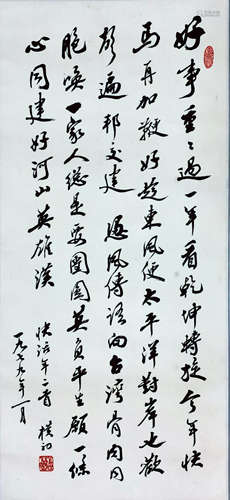 好事重々過一年看乾坤轉旋今年快
馬再加鞭好趁東風便太平洋對岸也歡
邦交建憑風傳語向台灣骨肉同
胞喚一家人總是要團圓莫負平生願一條
心同建好河山英雄漢
快活年一首 樸初
一九七九年一月